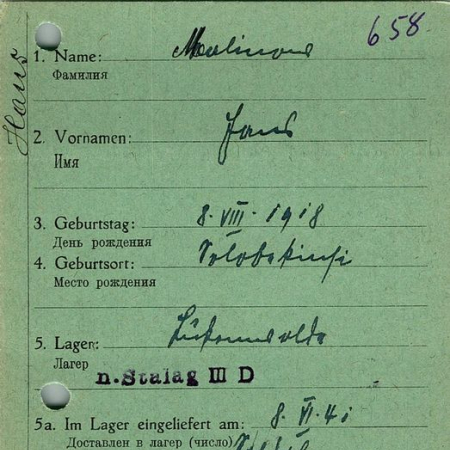 658
Hans
1. Name:
Фамилия
2. Vornamen: Hans
Имя
3. Geburtstag: 8. VIII. 1918
День рождения
4. Geburtsort:
Место рождения
5. Lager: Lückenwalde
Лагер
n. Stalag III D
5a. Im Lager eingeliefert am: 8. VI. 41
Доставлен в лагер (число)